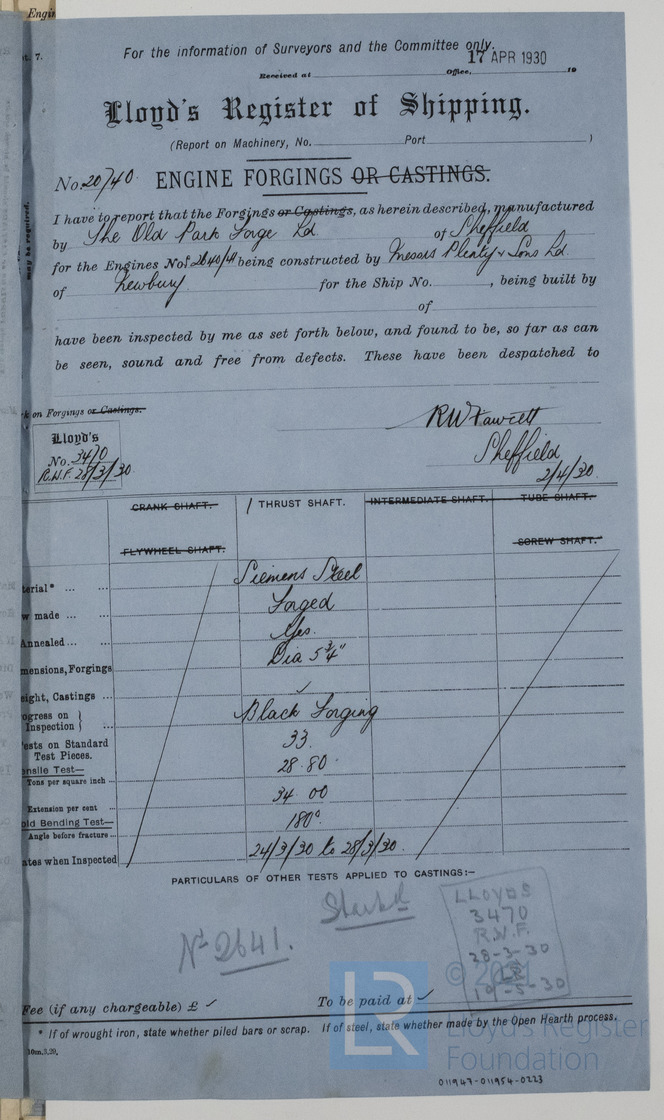 Engin
t. 7.
may be required.
For the information of Surveyors and the Committee only.
17 APR 1930
Received at Office, 19
Lloyd's Register of Shipping.
(Report on Machinery, No. Port )
No. 20740. ENGINE FORGINGS OR CASTINGS.
I have to report that the Forgings or Castings, as herein described, manufactured
by The Old Park Forge Ld of Sheffield
for the Engines Nos 2640/41 being constructed by Messrs Plenty & Sons Ld.
of Newbury for the Ship No. , being built by
of
have been inspected by me as set forth below, and found to be, so far as can
be seen, sound and free from defects. These have been despatched to
k on Forgings or Castings.
Lloyd's
No. 3470
R.W.F. 28/3/30
RW Fawcett
Sheffield
2/4/30.
CRANK SHAFT. 1 THRUST SHAFT. INTERMEDIATE SHAFT. TUBE SHAFT.
FLYWHEEL SHAFT. SCREW SHAFT.
terial* ... ... Siemens Steel
w made ... ... Forged
Annealed ... ... Yes.
mensions, Forgings Dia 5 3/4"
eight, Castings ... ✓
ogress on Inspection } ... Black Forging
ests on Standard Test Pieces. 33.
ensile Test—
Tons per square inch ... 28.80.
Extension per cent ... 34.00
old Bending Test—
Angle before fracture ... 180°.
ates when Inspected 24/3/30 to 28/3/30.
PARTICULARS OF OTHER TESTS APPLIED TO CASTINGS:—
Starbd
No 2641.
LLOYDS
3470
R.W.F.
28-3-30
LR
19-5-30
Fee (if any chargeable) £ ✓ To be paid at ✓
* If of wrought iron, state whether piled bars or scrap. If of steel, state whether made by the Open Hearth process.
10m.3,29.
LR
Lloyd's Register
Foundation
011947-011954-0223